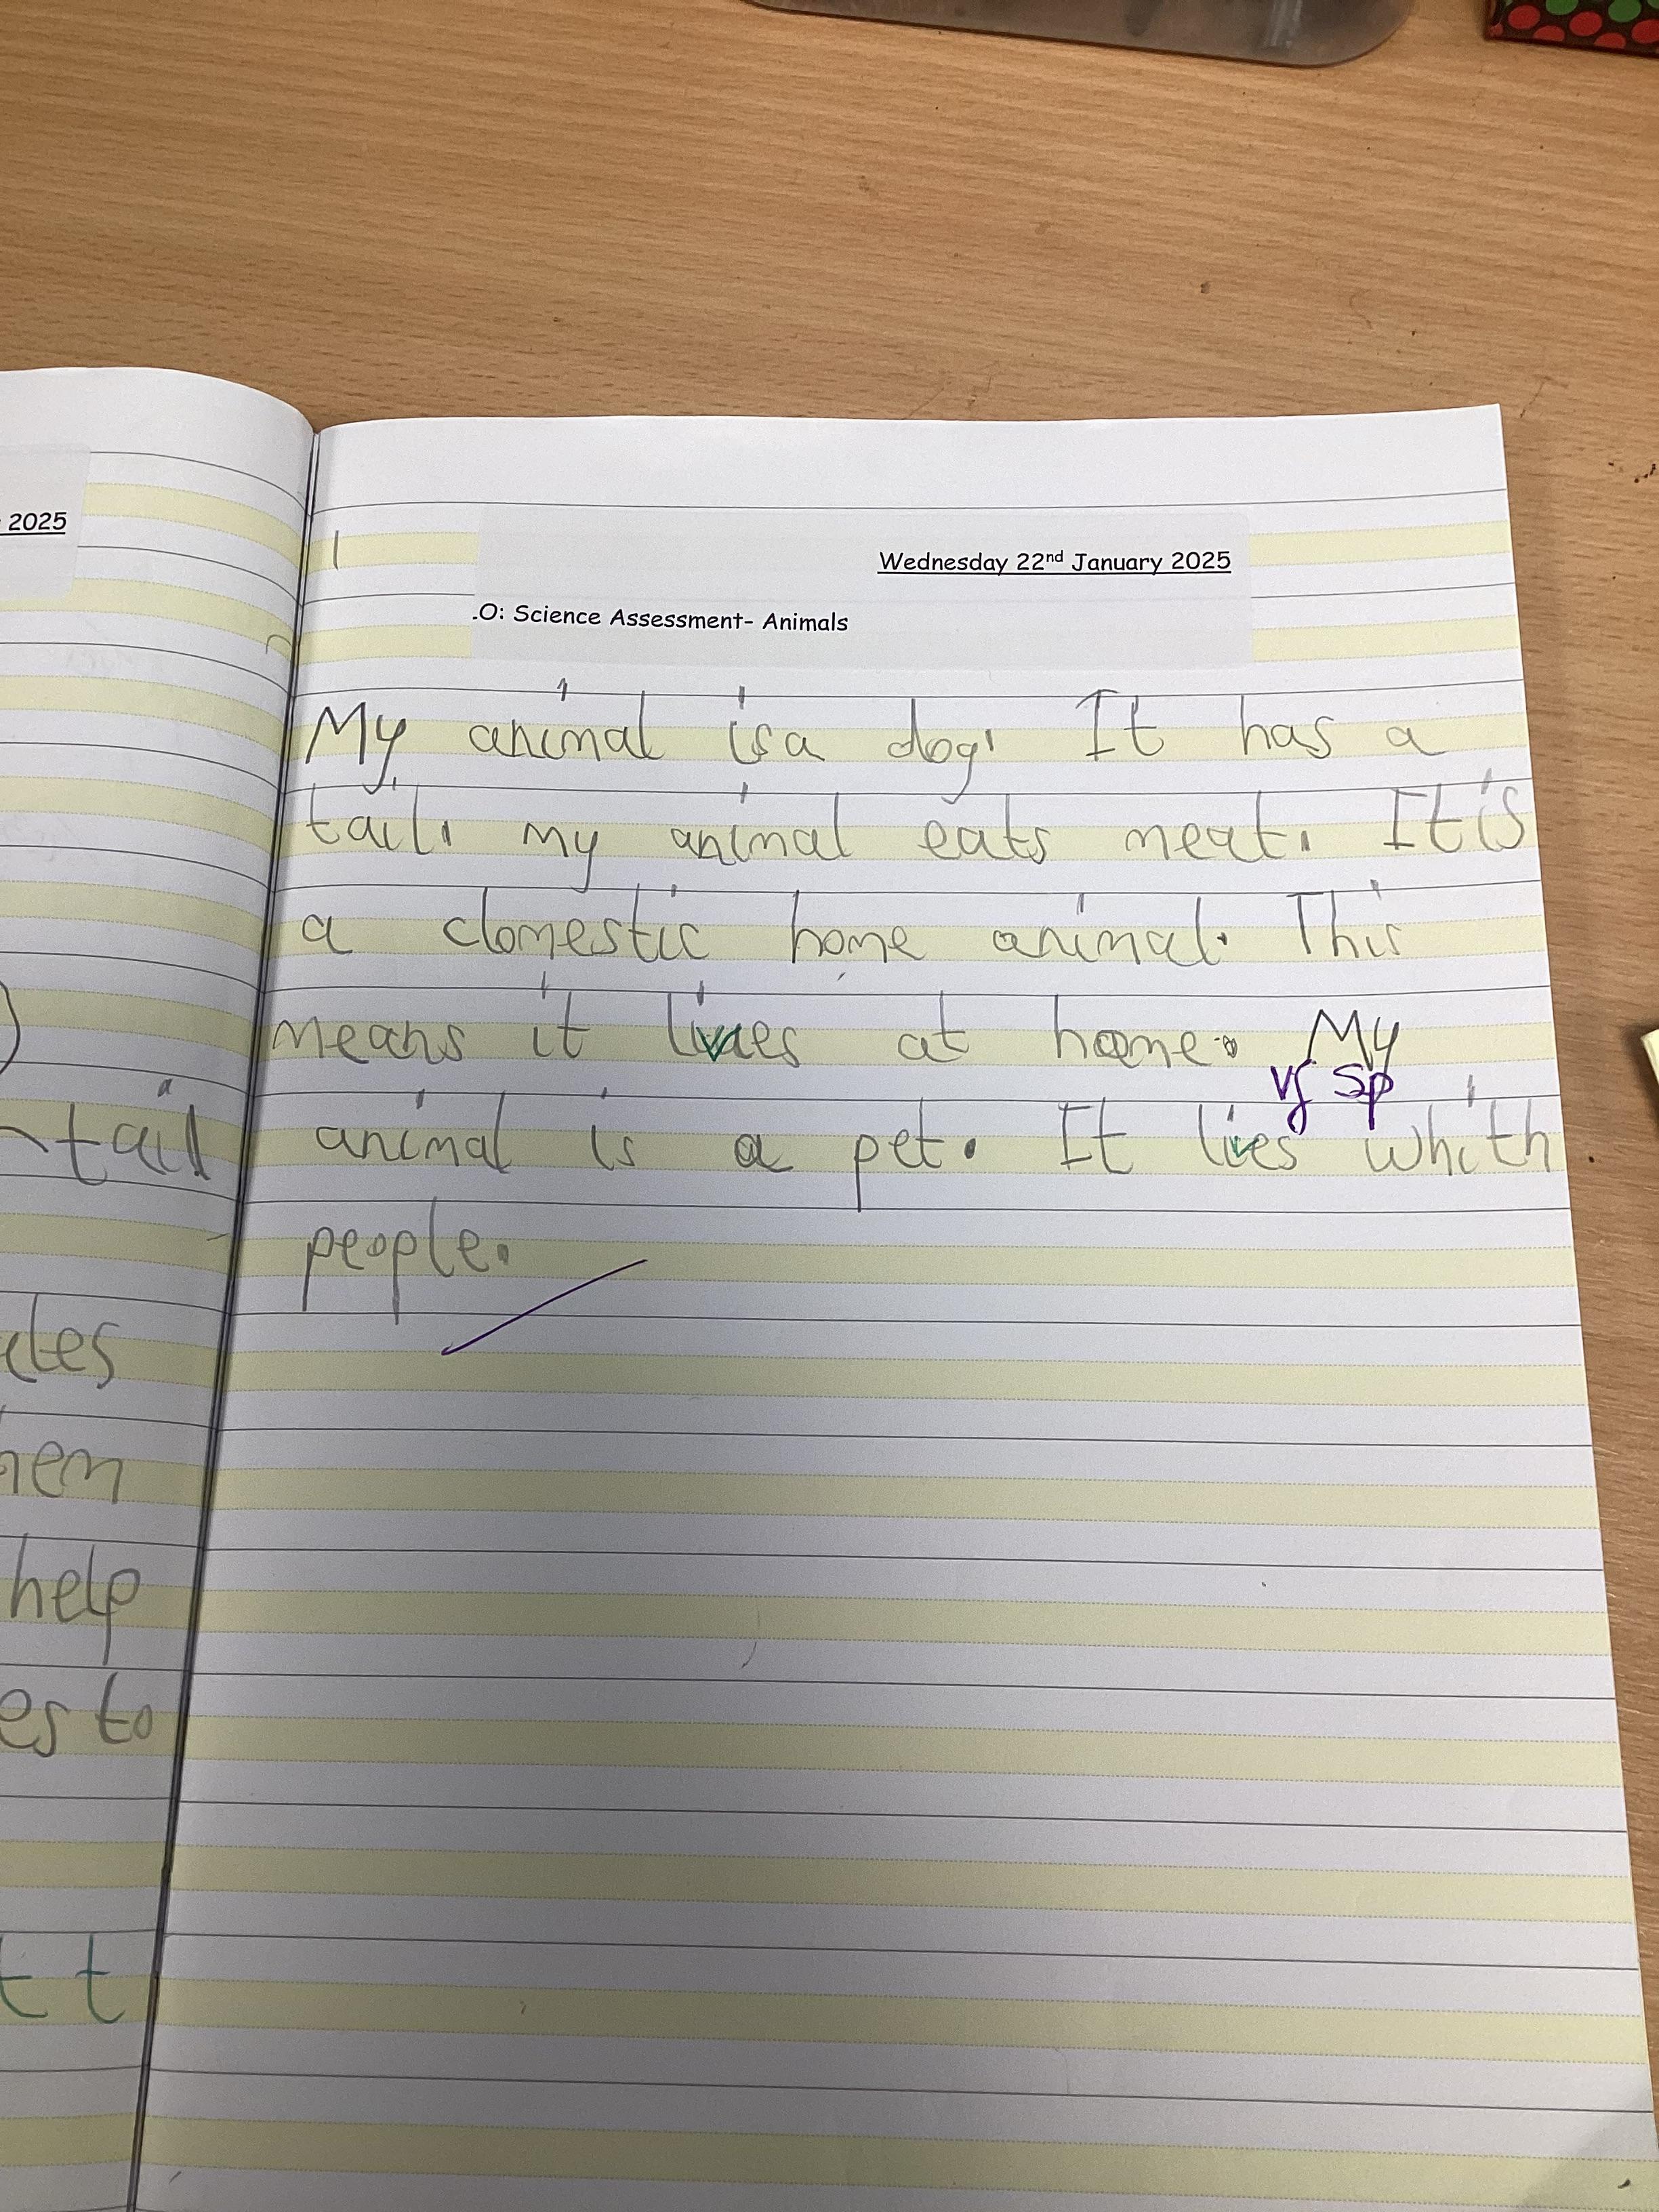 2025
Wednesday 22nd January 2025
.O: Science Assessment- Animals
My animal is a dog. It has a
tail. my animal eats meat. It is
a domestic home animal. This
means it lives at home. My
vf sp
animal is a pet. It lives whith
people.
tail
help
es to
t t